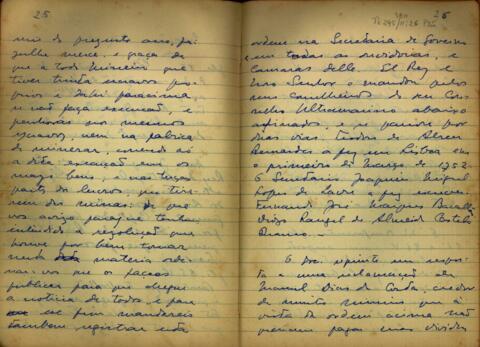 25
mil do presente ano, fa
que a todo Mineiro que
tiver trinta escravos pro
prios e dahi para cima
se não faça execução, e
penhora nos mesmos
escravos, nem na fabrica
de minerar, correndo só
a dita execução em os
mays bens e nas terças
partes do lucros, que tirá
rem das minas: de que
vos avizo para que tenhaes
entendido a resolução que
houve por bem tomar
nesta materia orde
nar-vos que os façaes
publicar para que chegue
a noticia de todos e para
esse fim mandareis
tambem registrar esta
26
ordem na Secretaria do Governo
em todas as ouvidorias, e
Camaras delle. El Rey, e
Nosso Senhor o mandou pelos
seus Conselheiros do seu Con
selho Ultramarino abaixo
assinados, e se passou por
duas vias. Theodoro de Abreu
Bernardes a fez em Lisboa em
o primeiro de Março de 1752.
O Secretario Joaquim Miguel
Lopes de Lavre a fez escrever.
Fernando José Marques Bacalhao
Diogo Rangel de Almeida Castelo
Branco.
O doc. seguinte em respos
ta a uma reclamação de
Manuel Dias da Costa, credor
de muitos mineiros que á
vista da ordem acima não
queriam pagar suas dividas